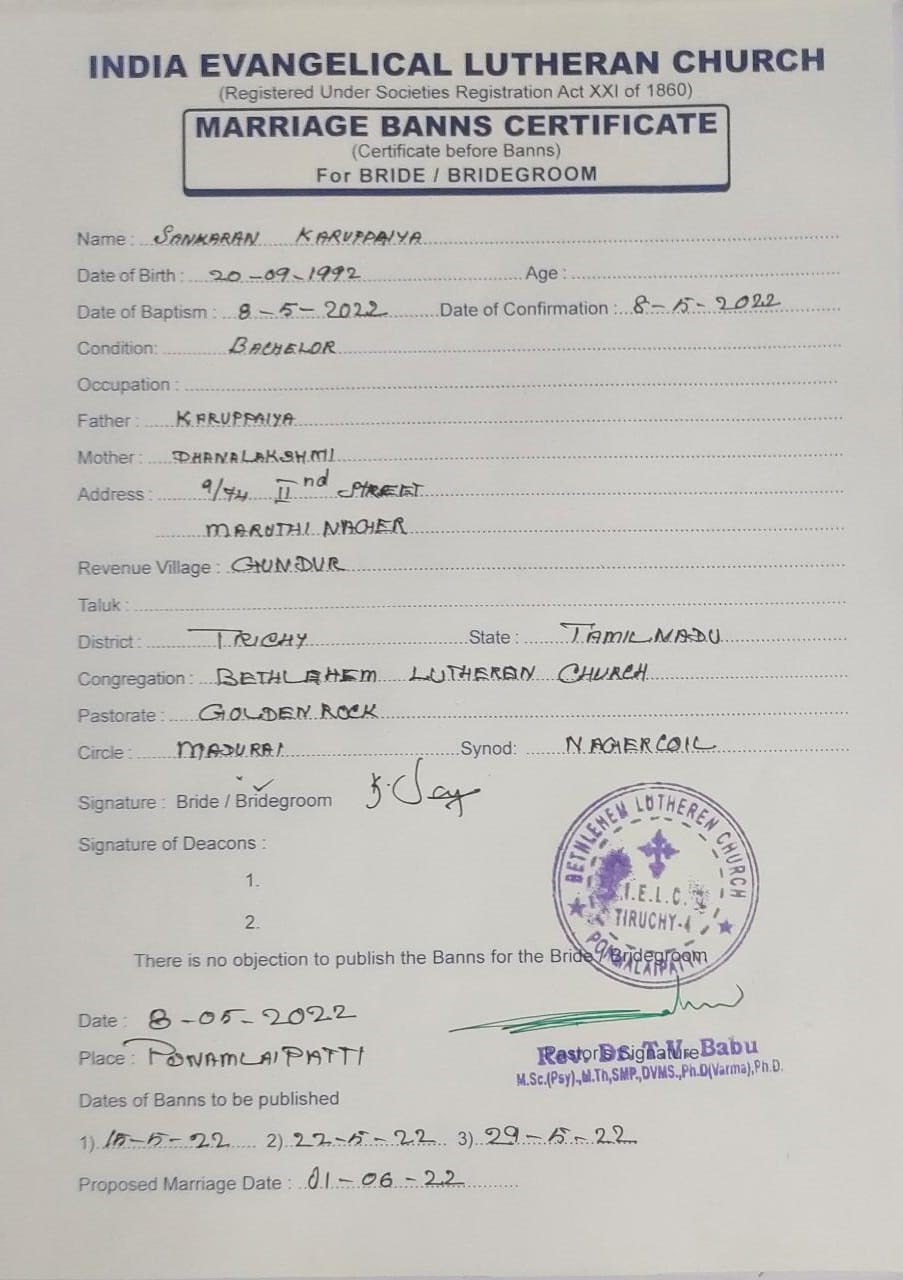 INDIA EVANGELICAL LUTHERAN CHURCH
(Registered Under Societies Registration Act XXI of 1860)
MARRIAGE BANNS CERTIFICATE
(Certificate before Banns)
For BRIDE / BRIDEGROOM
Name : SANKARAN KARUPPAIYA
Date of Birth : 20-09-1992 Age :
Date of Baptism : 8-5-2022 Date of Confirmation : 8-5-2022
Condition: BACHELOR
Occupation :
Father : KARUPPAIYA
Mother : DHANALAKSHMI
Address : 9/74 IInd STREET
MARUTHI NAGER
Revenue Village : GUNDUR
Taluk :
District : TRICHY State : TAMILNADU
Congregation : BETHLEHEM LUTHERAN CHURCH
Pastorate : GOLDEN ROCK
Circle : MADURAI Synod: NAGERCOIL
Signature : Bride / Bridegroom
Signature of Deacons :
1.
2.
BETHLEHEM LUTHEREN CHURCH
I.E.L.C.
TIRUCHY-4
PONMALAIPATTI
There is no objection to publish the Banns for the Bride / Bridegroom
Date : 8-05-2022
Place : PONAMLAIPATTI
Pastor's Signature
Rev. Dr. T.V. Babu
M.Sc.(Psy).,M.Th,SMP.,DVMS.,Ph.D(Varma),Ph.D.
Dates of Banns to be published
1) 15-5-22 2) 22-5-22 3) 29-5-22
Proposed Marriage Date : 01-06-22